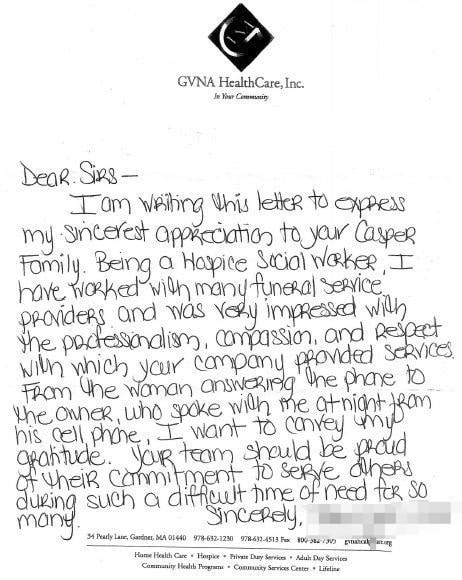 GVNA HealthCare, Inc.
In Your Community
Dear Sirs —
I am writing this letter to express
my sincerest appreciation to your Casper
Family. Being a Hospice Social Worker, I
have worked with many funeral service
providers and was very impressed with
the professionalism, compassion, and respect
with which your company provided services.
From the woman answering the phone to
the owner, who spoke with me at night from
his cell phone, I want to convey my
gratitude. Your team should be proud
of their commitment to serve others
during such a difficult time of need for so
many. Sincerely,
34 Pearly Lane, Gardner, MA 01440 978-632-1230 978-632-4513 Fax
Home Health Care • Hospice • Private Duty Services • Adult Day Services
Community Health Programs • Community Services Center • Lifeline